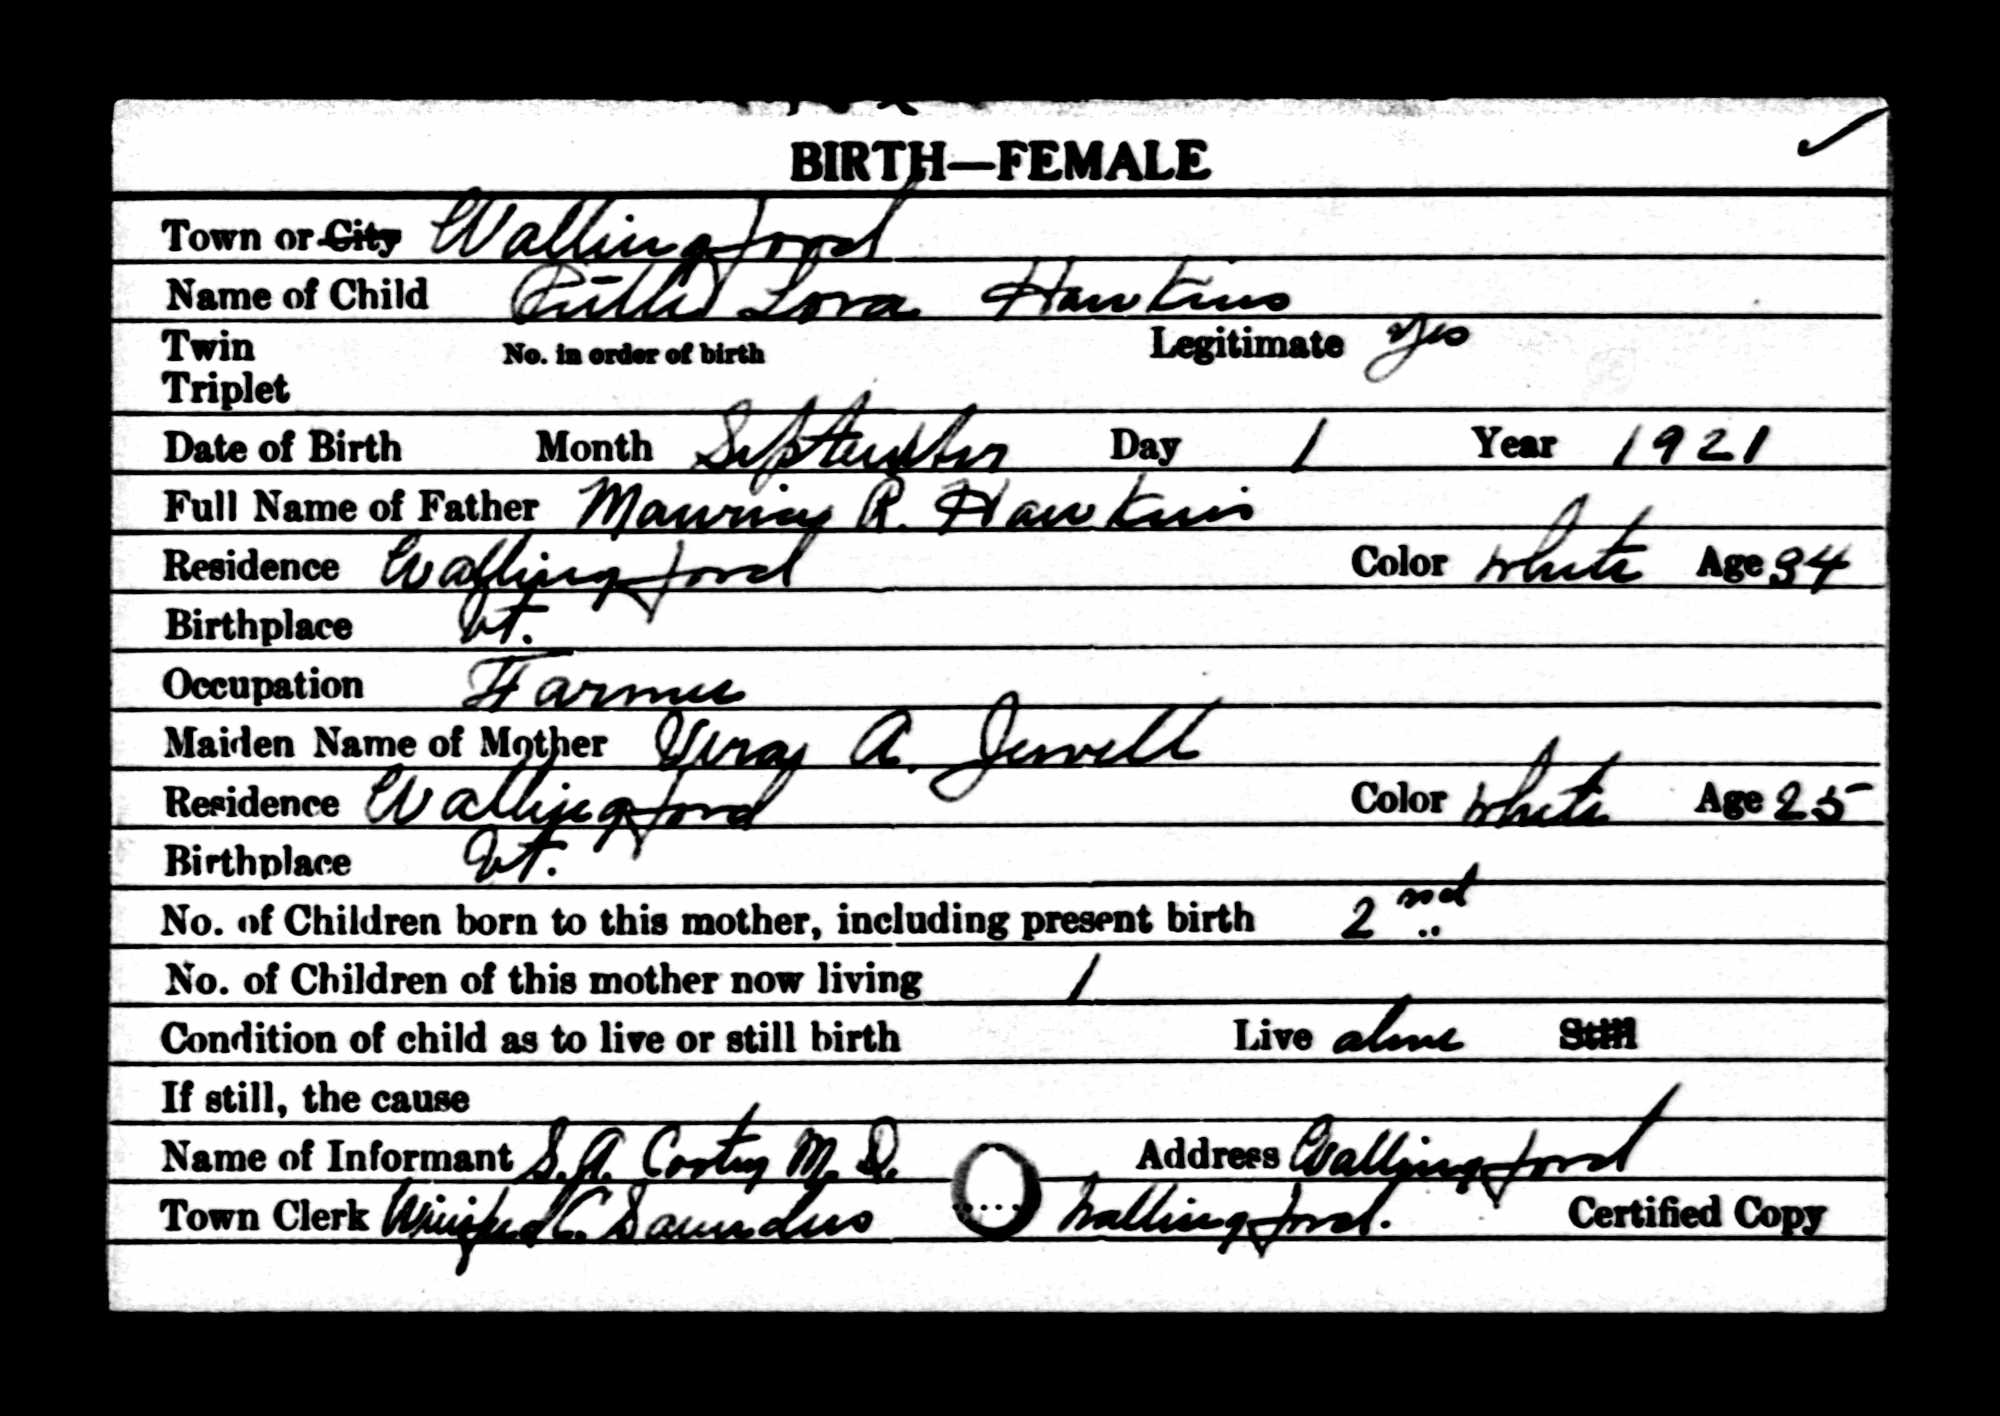 BIRTH—FEMALE
Town or City Wallingford
Name of Child Ruth Lora Hawkins
Twin
No. in order of birth Legitimate yes
Triplet
Date of Birth Month September Day 1 Year 1921
Full Name of Father Maurice R. Hawkins
Residence Wallingford Color white Age 34
Birthplace Vt.
Occupation Farmer
Maiden Name of Mother A. Jewell
Residence Wallingford Color white Age 25
Birthplace Vt.
No. of Children born to this mother, including present birth 2nd
No. of Children of this mother now living 1
Condition of child as to live or still birth Live alive Still
If still, the cause
Name of Informant S. A. M. D. Address Wallingford
Town Clerk Saunders Wallingford. Certified Copy